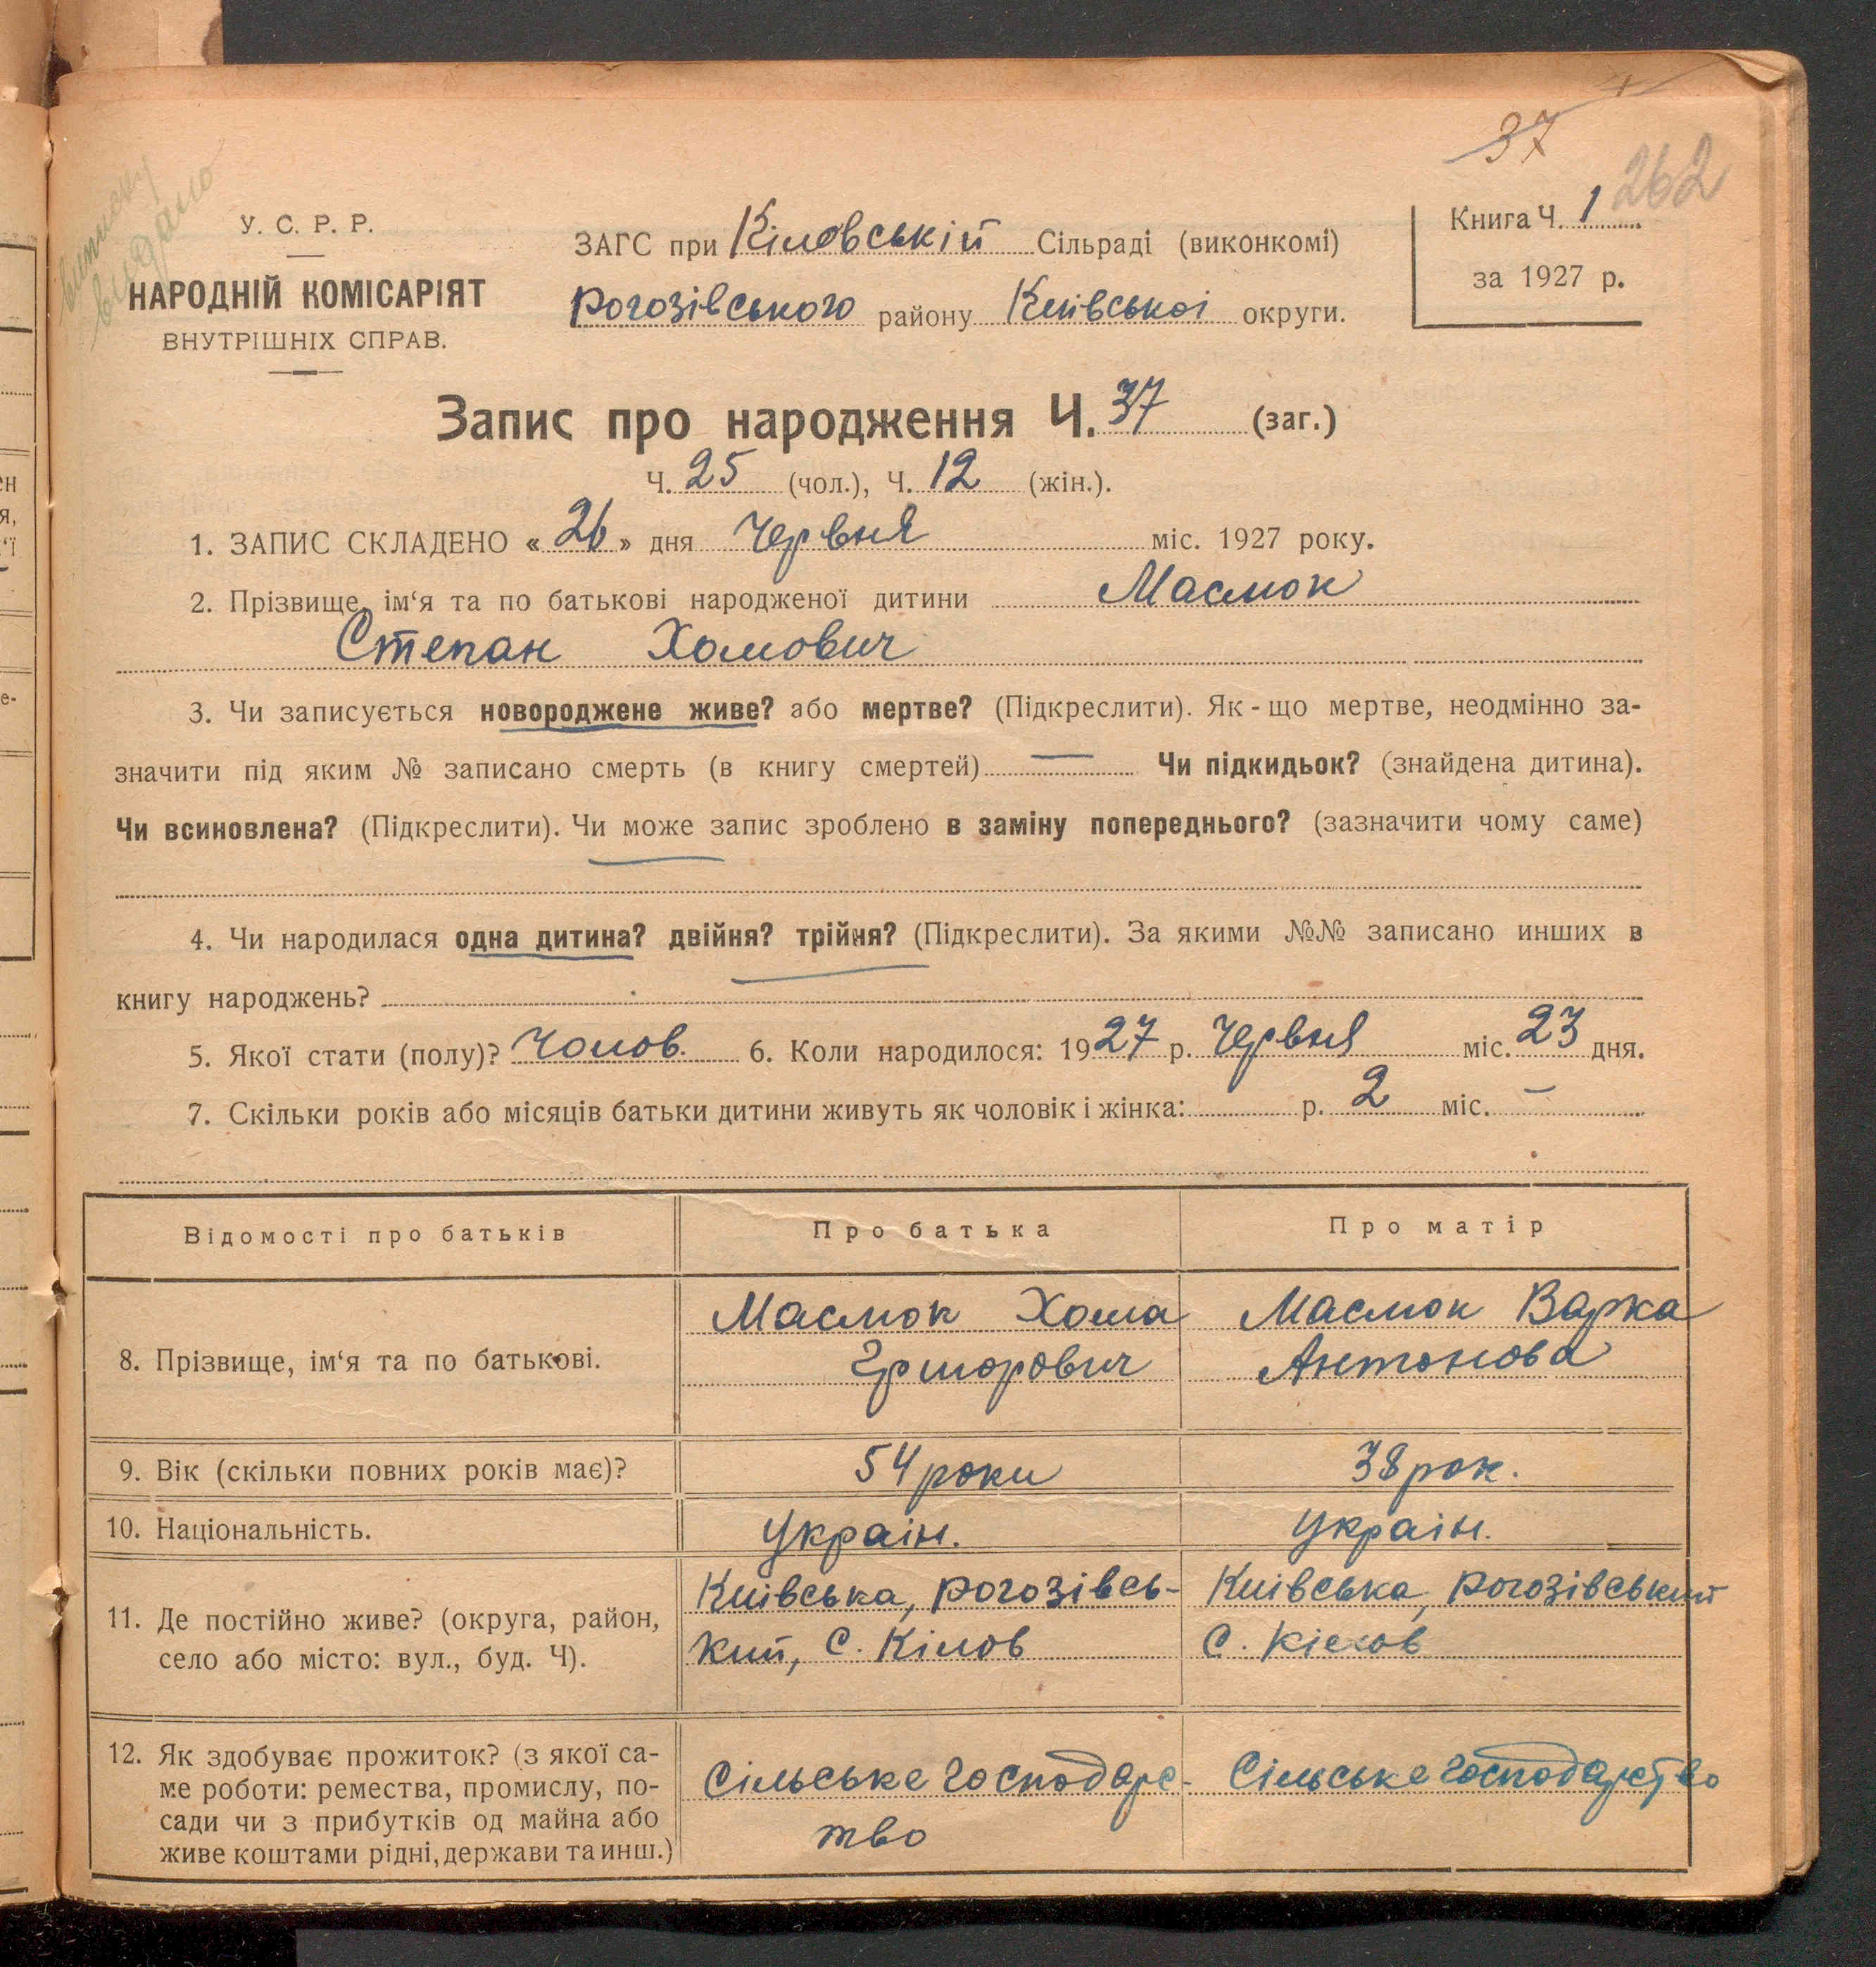 37
262
виписку
видано
У. С. Р. Р.
НАРОДНІЙ КОМІСАРІЯТ
ВНУТРІШНІХ СПРАВ.
ЗАГС при Кіловській Сільраді (виконкомі)
Рогозівського району Київської округи.
Книга Ч. 1
за 1927 р.
Запис про народження Ч. 37 (заг.)
Ч. 25 (чол.), Ч. 12 (жін.).
1. ЗАПИС СКЛАДЕНО « 26 » дня Червня міс. 1927 року.
2. Прізвище, ім‘я та по батькові народженої дитини Маслюк
Степан Хомович
3. Чи записується новороджене живе? або мертве? (Підкреслити). Як-що мертве, неодмінно за-
значити під яким № записано смерть (в книгу смертей) — Чи підкидьок? (знайдена дитина).
Чи всиновлена? (Підкреслити). Чи може запис зроблено в заміну попереднього? (зазначити чому саме)
4. Чи народилася одна дитина? двійня? трійня? (Підкреслити). За якими №№ записано инших в
книгу народжень?
5. Якої стати (полу)? Чолов. 6. Коли народилося: 1927 р. Червня міс. 23 дня.
7. Скільки років або місяців батьки дитини живуть як чоловік і жінка: р. 2 міс. —
Відомості про батьків Про батька Про матір
8. Прізвище, ім‘я та по батькові.
Маслюк Хома
Григорович
Маслюк Варка
Антонова
9. Вік (скільки повних років має)? 54 роки 38 рок.
10. Національність. Україн. Україн.
11. Де постійно живе? (округа, район,
село або місто: вул., буд. Ч).
Київська, Рогозівсь-
кий, С. Кілов
Київська, Рогозівський
С. Кілов
12. Як здобуває прожиток? (з якої са-
ме роботи: ремества, промислу, по-
сади чи з прибутків од майна або
живе коштами рідні, держави та инш.)
Сільське господарс-
тво
Сільське господарство